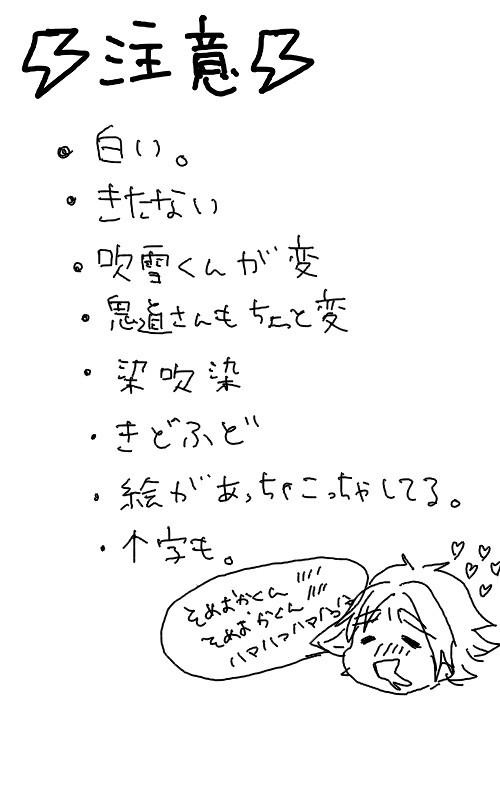 注意
・白い。
・きたない
・吹雪くんが変
・鬼道さんもちょっと変
・染吹染
・きどふど
・絵があっちゃこっちゃしてる。
・个字も。
そめおかくん////
そめおかくん////
ハァハァハァハァハァ